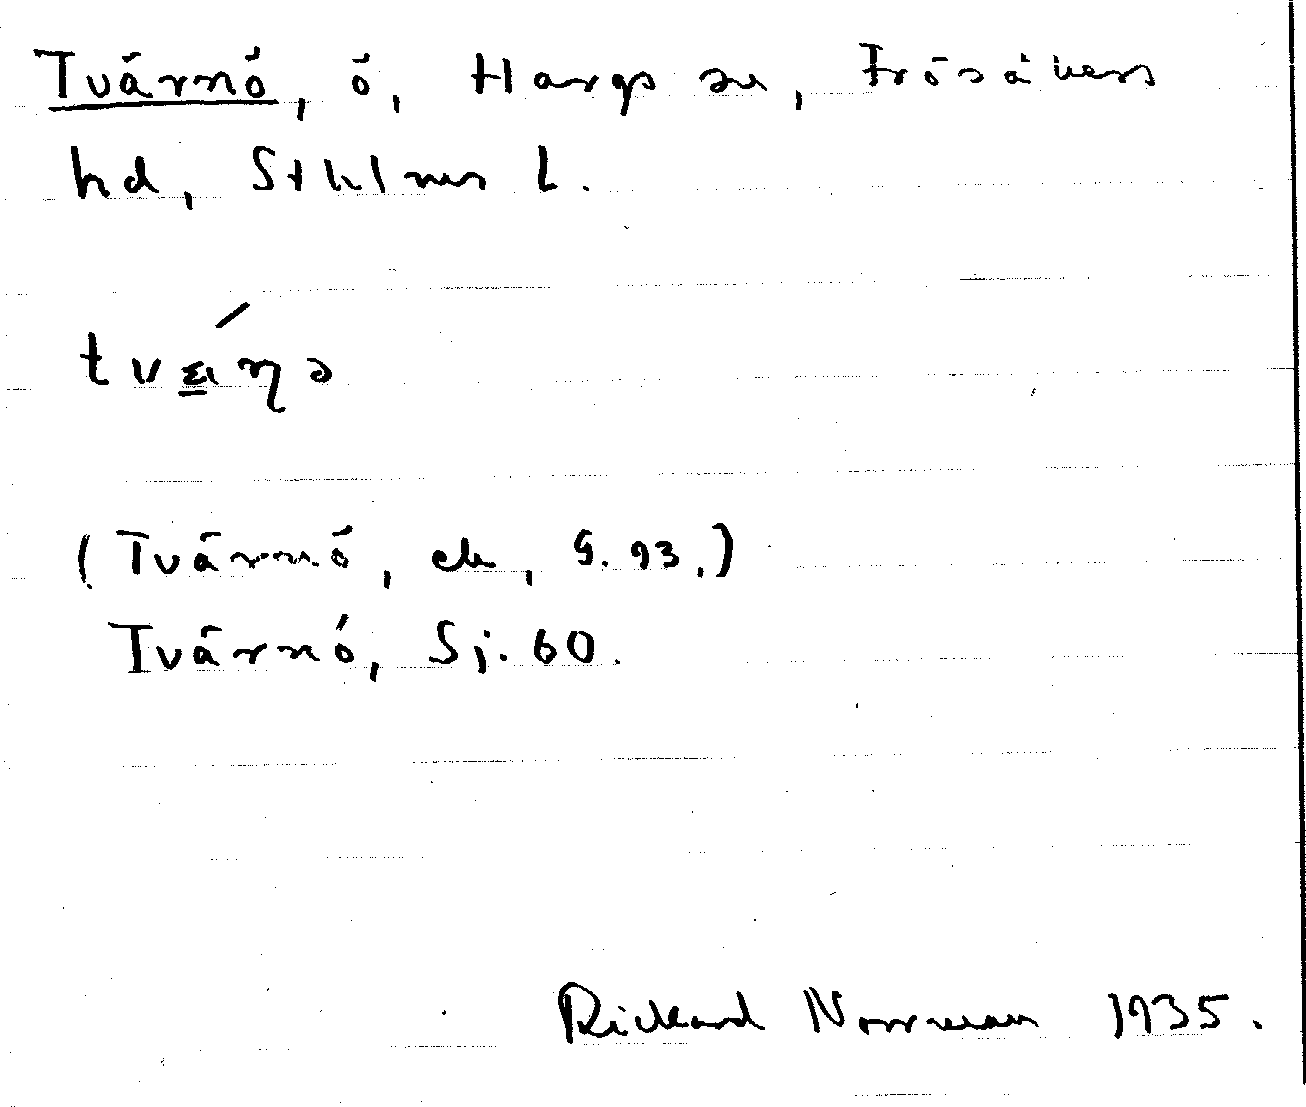 Tvärnö, ö, Hargs sn, Frösåkers
hd, Sthlms l.
(Tvärnö, ek, G. 93.)
Tvärnö, Sj. 60.
Rickard Norrman 1935.